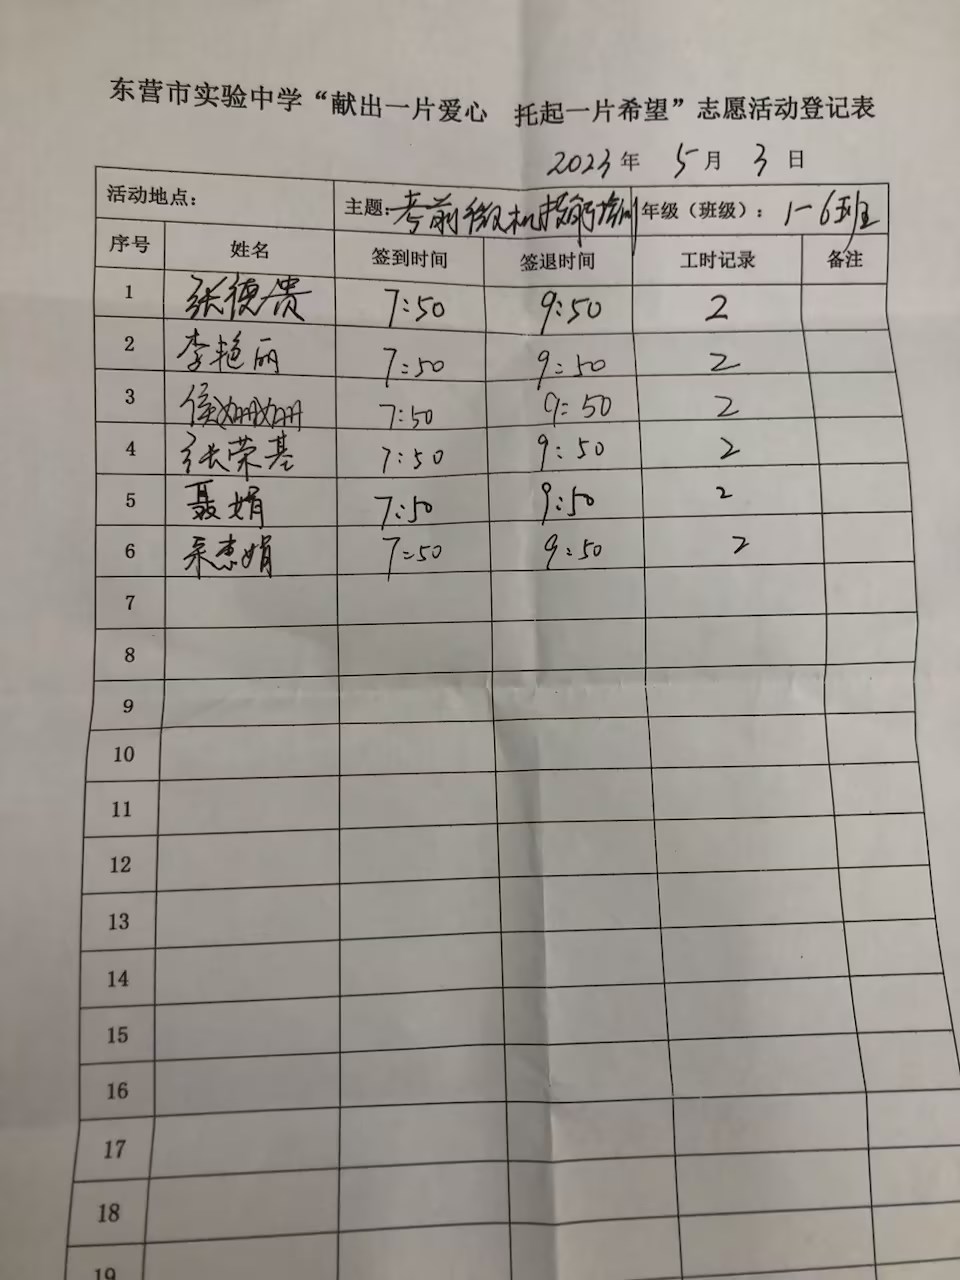 东营市实验中学“献出一片爱心 托起一片希望”志愿活动登记表
2023年 5月 3日
活动地点: 主题:考前微机技能培训 年级(班级): 1-6班
序号 姓名 签到时间 签退时间 工时记录 备注
1 张德贵 7:50 9:50 2
2 李艳丽 7:50 9:50 2
3 侯姗姗 7:50 9:50 2
4 张荣基 7:50 9:50 2
5 聂娟 7:50 9:50 2
6 娟 7:50 9:50 2
7
8
9
10
11
12
13
14
15
16
17
18
19